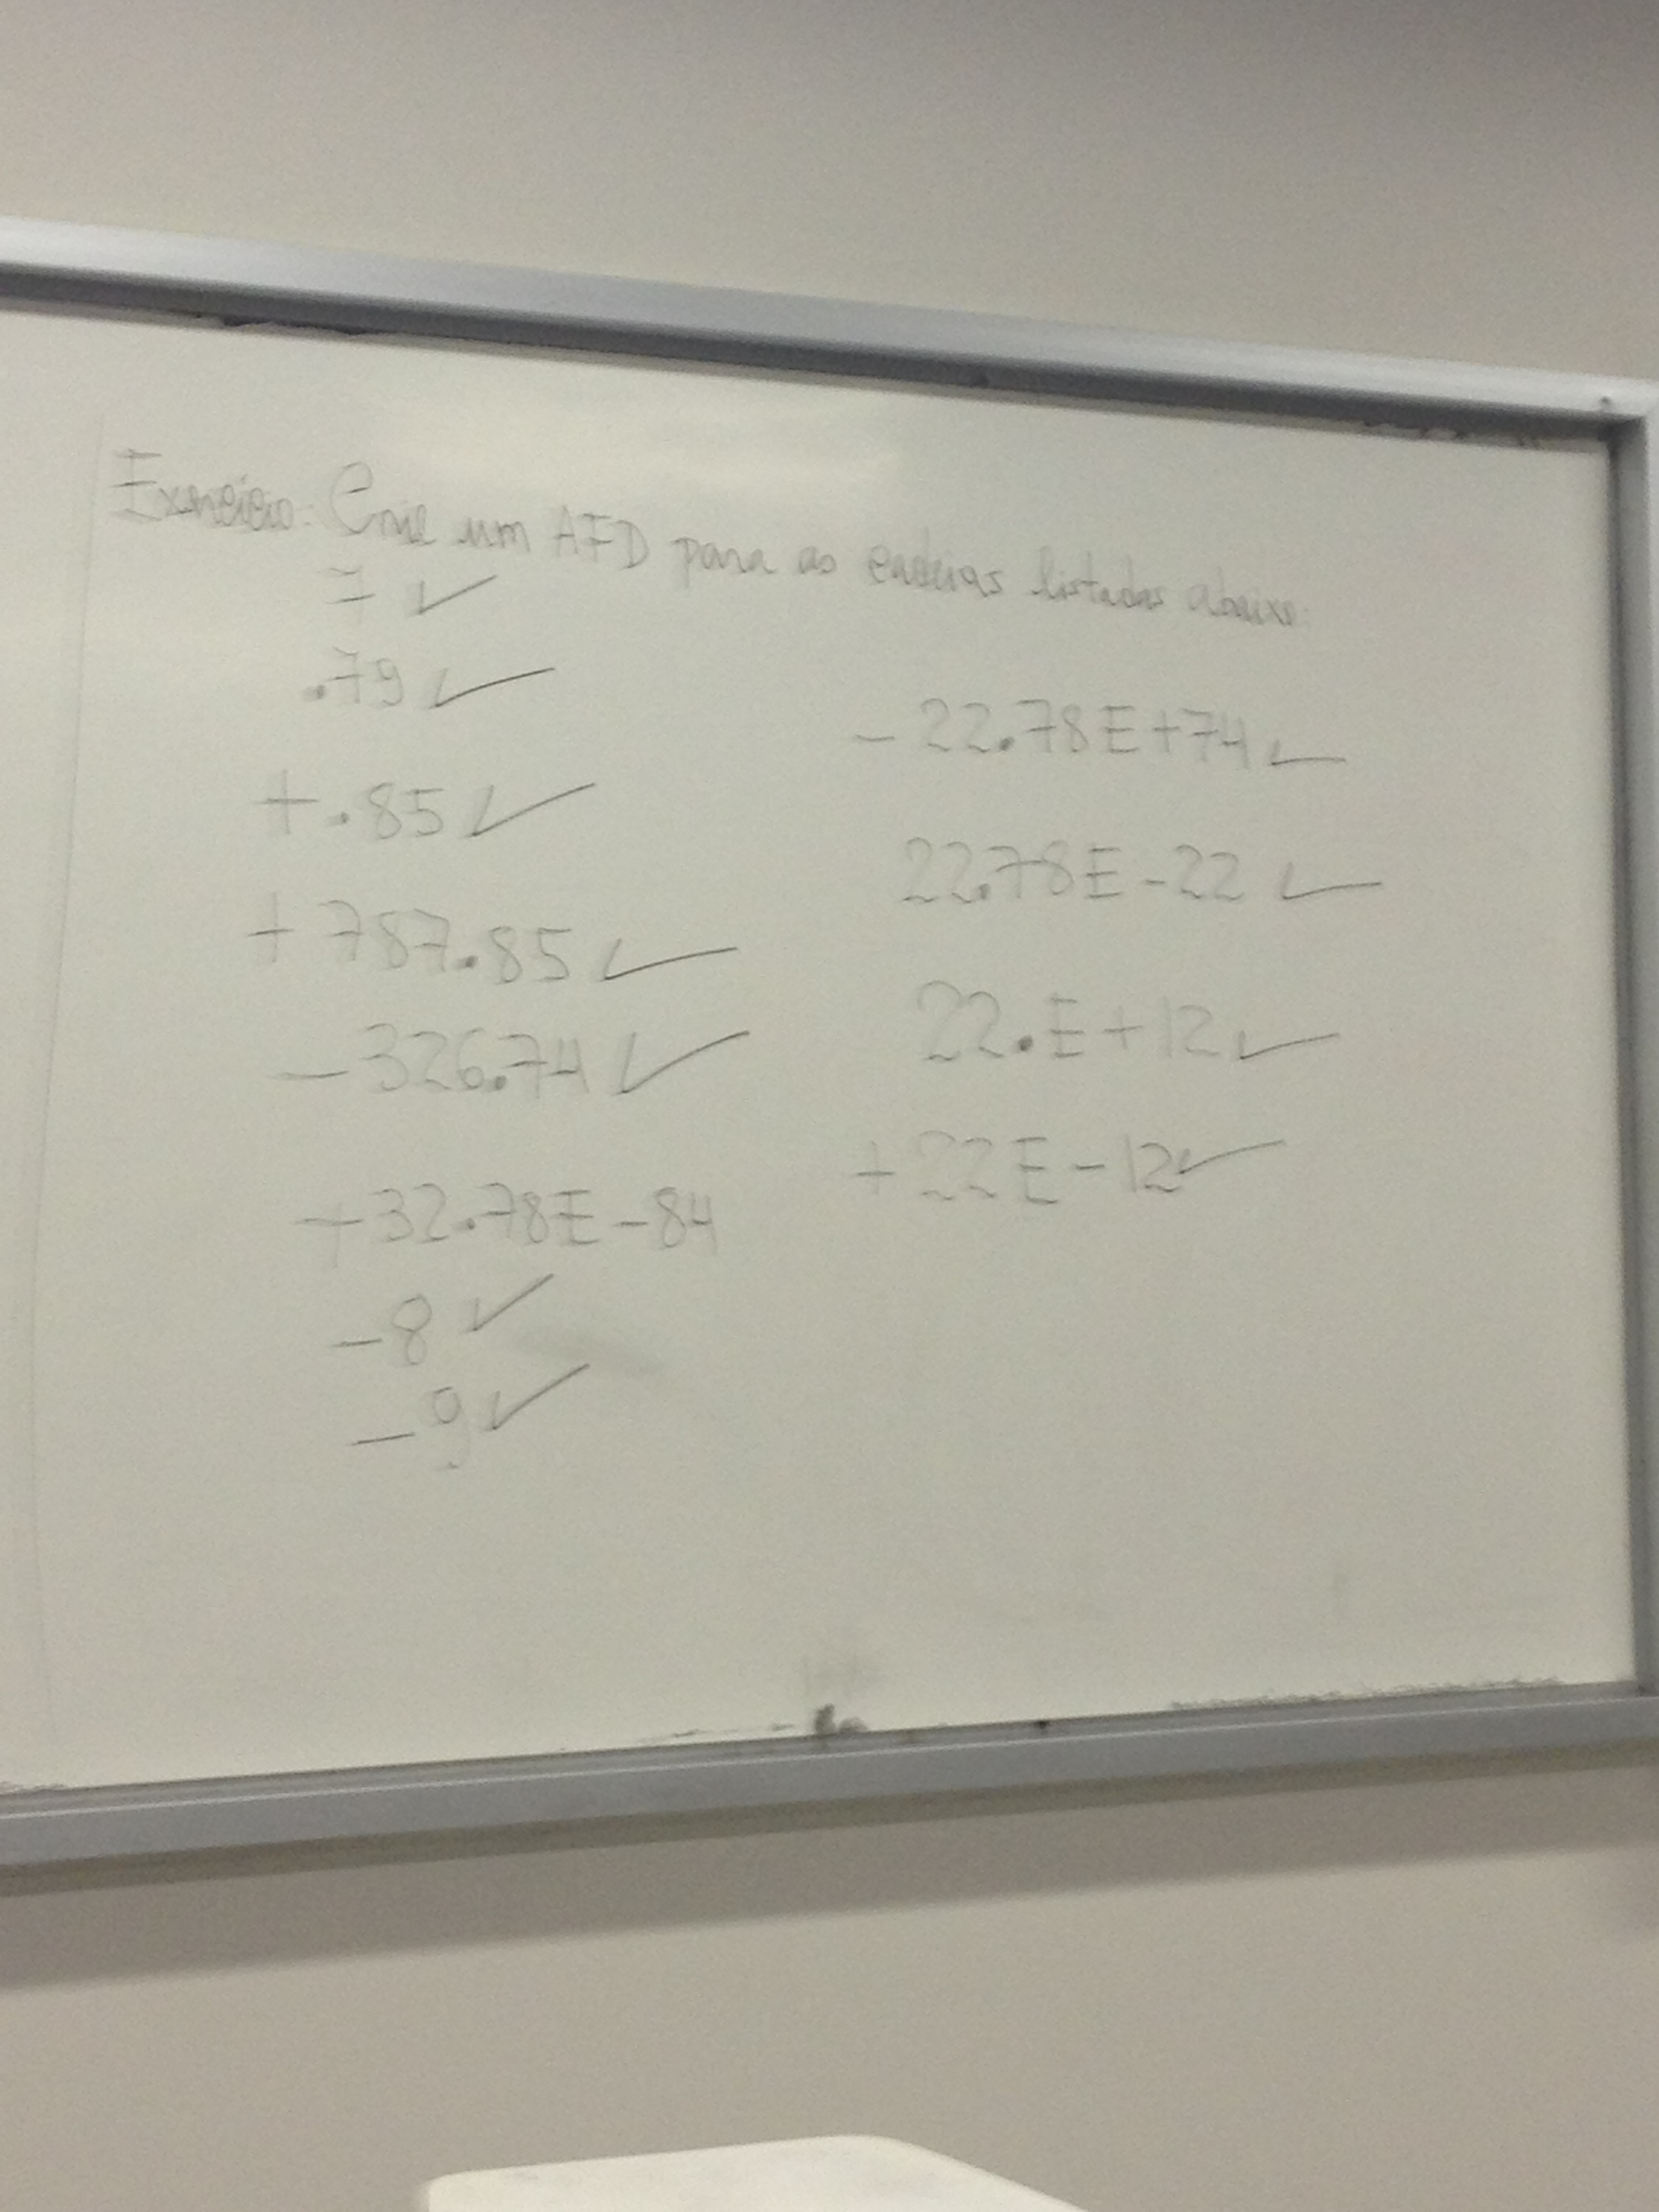 Exercício: Crie um AFD para as cadeias listadas abaixo:
7 ✓
.79 ✓
+.85 ✓
+787.85 ✓
-326.74 ✓
+32.78E-84
-8 ✓
-9 ✓
-22.78E+74 ✓
22.78E-22 ✓
22.E+12 ✓
+22E-12 ✓